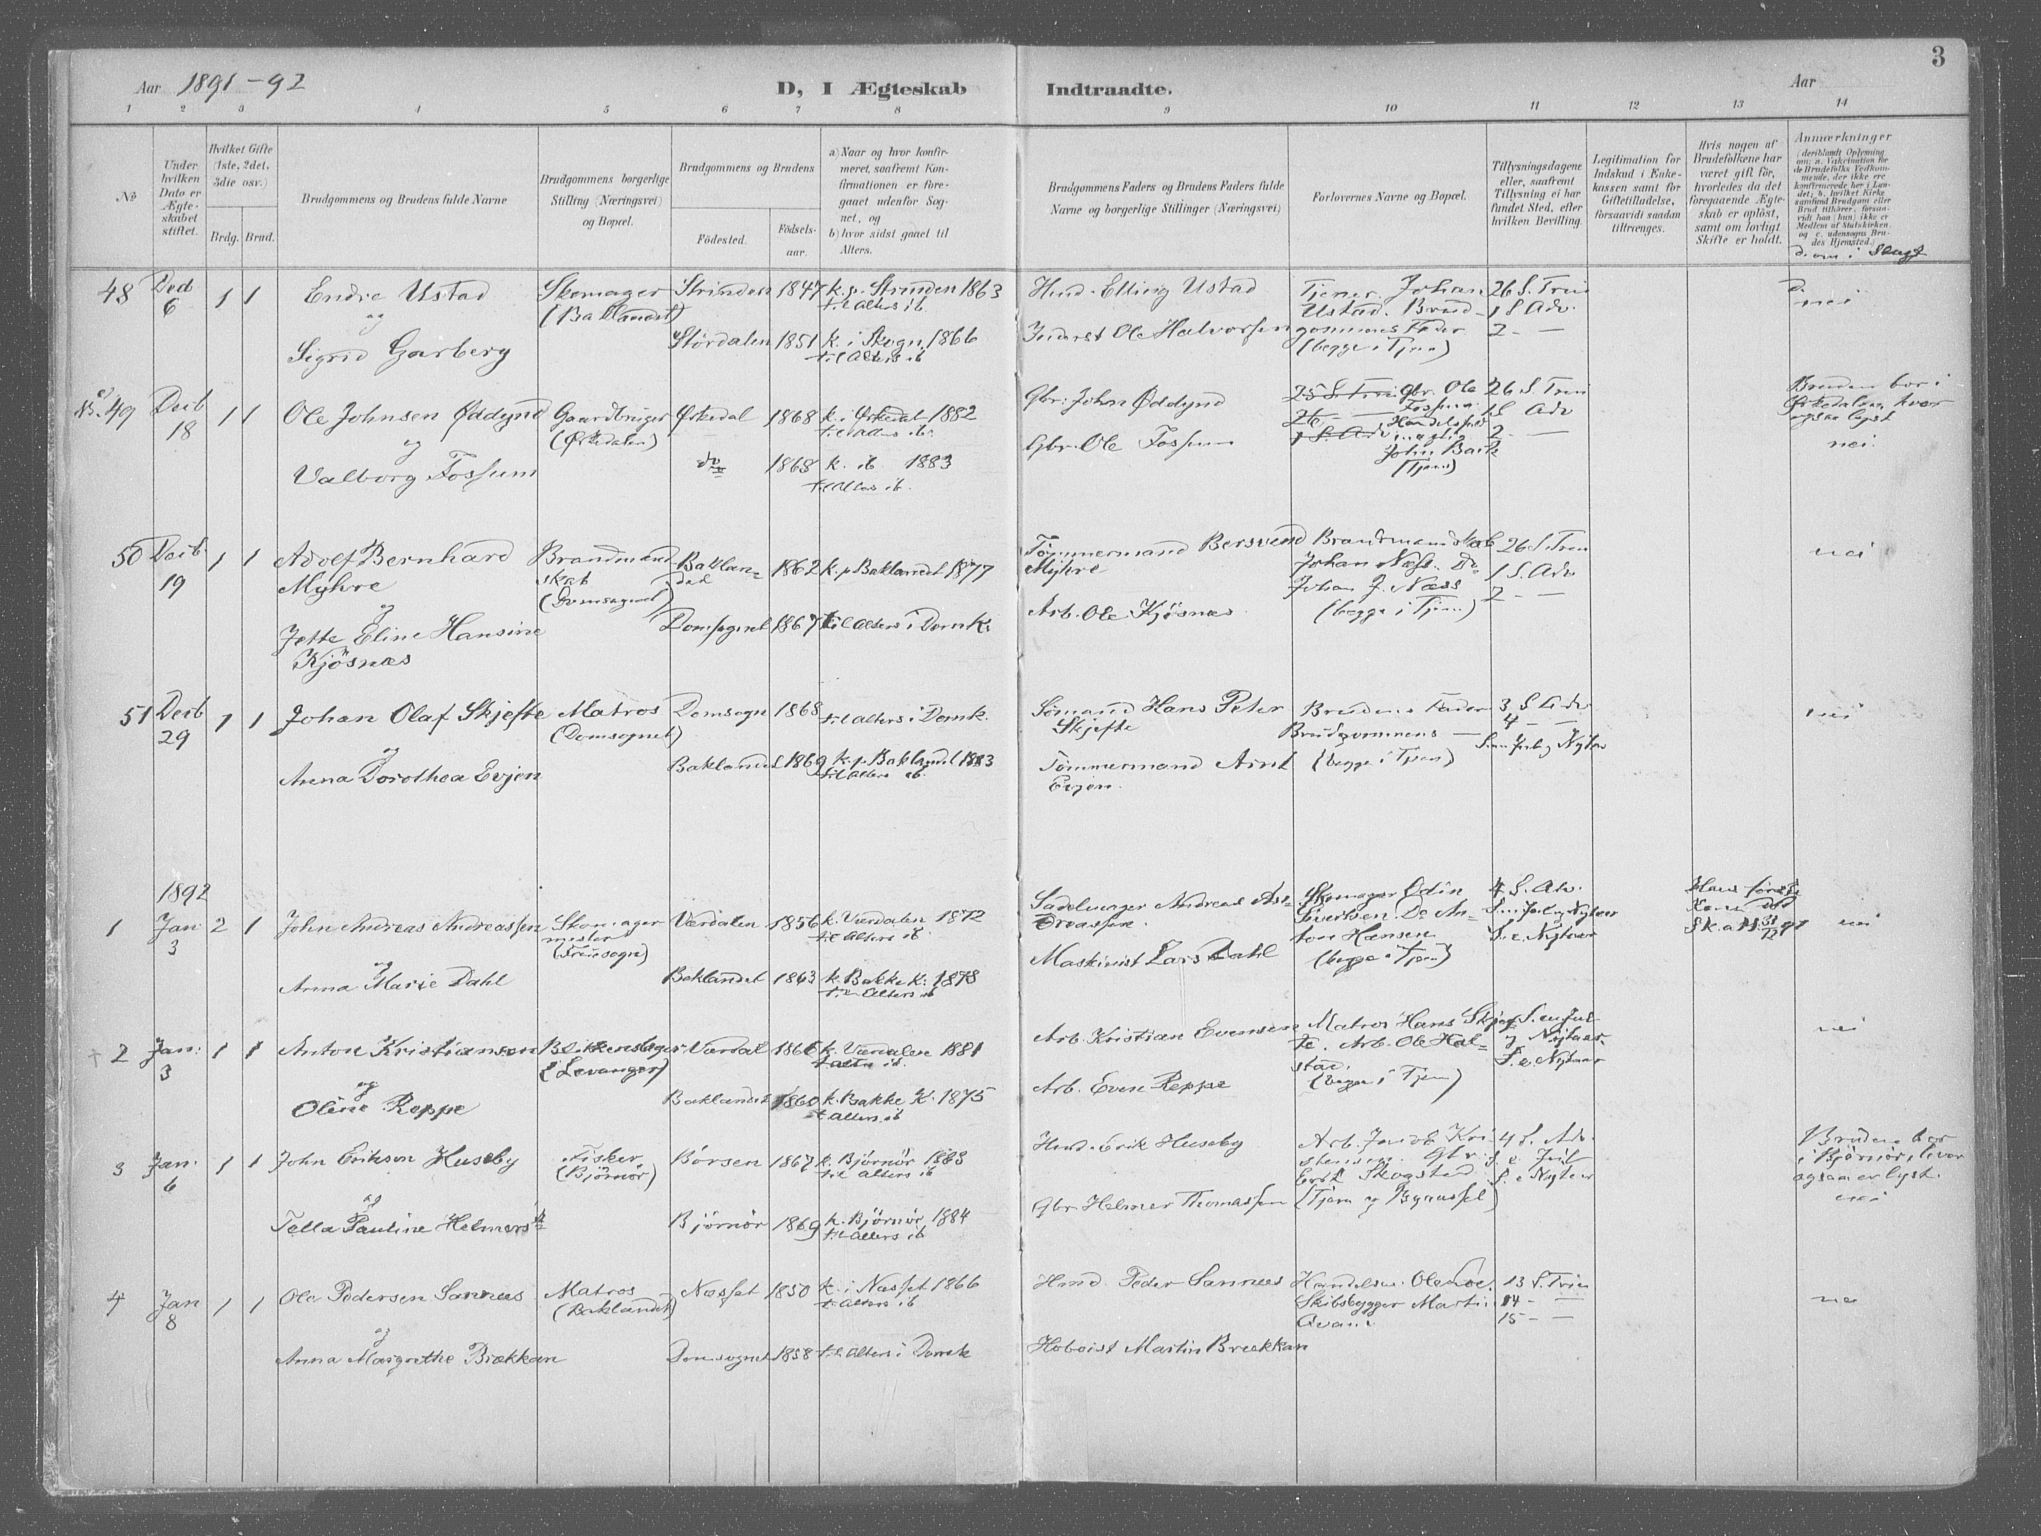 Aar 1891-92
D, I Ægteskab Indtraadte.
Aar
3
1 2 3 4 5 6 7 8 9 10 11 12 13 14
No
Under hvilken Dato er Ægteskabet stiftet.
Hvilket Gifte (1ste, 2det, 3die osv.)
Brdg. Brud.
Brudgommens og Brudens fulde Navne
Brudgommens borgerlige Stilling (Næringsvei) og Bopæl.
Brudgommens og Brudens
Fødested.
Fødselsaar.
a) Naar og hvor konfirmeret, saafremt Konfirmationen er foregaaet udenfor Sognet, og
b) hvor sidst gaaet til Alters.
Brudgommens Faders og Brudens Faders fulde Navne og borgerlige Stillinger (Næringsvei)
Forlovernes Navne og Bopæl.
Tillysningsdagene eller, saafremt Tillysning ei har fundet Sted, efter hvilken Bevilling.
Legitimation for Indskud i Enkekassen samt for Giftetilladelse, forsaavidt saadan tiltrænges.
Hvis nogen af Brudefolkene har været gift før, hvorledes da det foregaaende Ægteskab er opløst, samt om lovligt Skifte er holdt.
Anmærkninger
48 Decb 6 1 1
Endre Ustad
og
Sigrid Garberg
Skomager
(Baklandet)
Strinden 1847 k. p. Strinden 1863
til Alters ib.
Størdalen 1851 k. i Skogn 1866
til Alters ib
Hmd. Elling Ustad
Inderst Ole Halvorsen
Tjener Johan
Ustad. Brud-
gommens Fader
(begge i Tjen)
26 S. Trin
1 S. Adv.
2 - —
nei
No. 49 Decb 18 1 1
Ole Johnsen Øddynd
og
Valborg Fossum
Gaardbruger
(Ørkedalen)
Ørkedal 1868 k. i Ørkedal 1882
til Alters ib.
do 1868 k. ib. 1883
til Alters ib.
Gbr. John Øddynd
Gbr. Ole Fossum
Gbr. Ole
Fossum
26 S. Trin
1 S. Adv
2 - —
Bruden bor i
Ørkedalen, hvor
ogsaa lyst
nei.
50 Decb 19 1 1
Adolf Bernhard
Myhre
og
Jette Eline Hansine
Kjösnæs
Brandmand-
skab
(Domsognet)
Baklan-
det 1862 k. p Baklandet 1877
Domsognet 1867 til Alters i Domk.
Tømmermand Bersvend
Myhre
Arb. Ole Kjösnæs
Brandmandskab
Johan Næss. Do
Johan J. Næss
(begge i Tjen)
26 S. Trin
1 S. Adv
2 - —
nei
51 Decb 29 1 1
Johan Olaf Skjefte
og
Anna Dorothea Evjen
Matros
(Domsognet)
Domsogn 1868 til Alters i Domk.
Baklandet 1869 k. p. Baklandet 1883
til Alters ib.
Sømand Hans Peter
Skjefte
Tömmermand Arnt
Evjen.
Brudens Fader
Brudgommens —
(begge i Tjen)
3 S Adv
4 - —
S. m. Jul og Nytaar
nei
1892
1 Jan 3 2 1
John Andreas Andreassen
og
Anna Marie Dahl
Skomager
mester
(Friesogn)
Værdalen 1856 k. Værdalen 1872
til Alters ib.
Baklandet 1863 k. Bakke K. 1878
til Alters ib
Sadelmager Andreas An-
dreassen.
Maskinist Lars Dahl
Skomager Odin
Siversen. Do An-
ton Hansen
(begge i Tjen)
4 S. Adv.
S. m. Jul og Nytaar
S. e. Nytaar
Hans første
Kone død
nei
2 Jan. 3 1 1
Anton Kristiansen
og
Oline Reppe
Blikkenslager
(Levanger)
Værdal 1866 k. Værdalen 1881
til Alters ib.
Baklandet 1860 k. Bakke K. 1875
til Alters ib
Arb. Kristian Evensen
Arb. Even Reppe
Matros Hans Skjef-
te. Arb. Ole Hal-
stad.
(begge i Tjen)
S. m Jul
og Nytaar.
S. e. Nytaar
nei
3 Jan. 6 1 1
John Erikson Huseby
og
Tella Pauline Helmersdt
Fisker
(Bjørnør)
Børsen 1867 k. Bjørnør 1883
til Alters ib
Bjørnør 1869 k. Bjørnør 1884
til Alters ib
Hmd. Erik Huseby
Gbr Helmer Thomassen
Arb. Jacob Kri-
stensen. Gbr.
Erik Skogstad
4 S. Adv.
S. e. Jul
S. e Nytaar
Bruden bor
i Bjørnør, hvor
ogsaa er lyst.
nei
4 Jan 8 1 1
Ole Pedersen Sannæs
og
Anna Margrethe Brækkan
Matros
(Baklandet)
Næsset 1850 k. i Næsset 1866
til Alters ib
Domsognet 1858 til Alters i Domk
Hmd. Peder Sannæs
Hoboist Martin Brækkan
Skibsbygger Martin
13 S. Trin
14 - —
15 - —